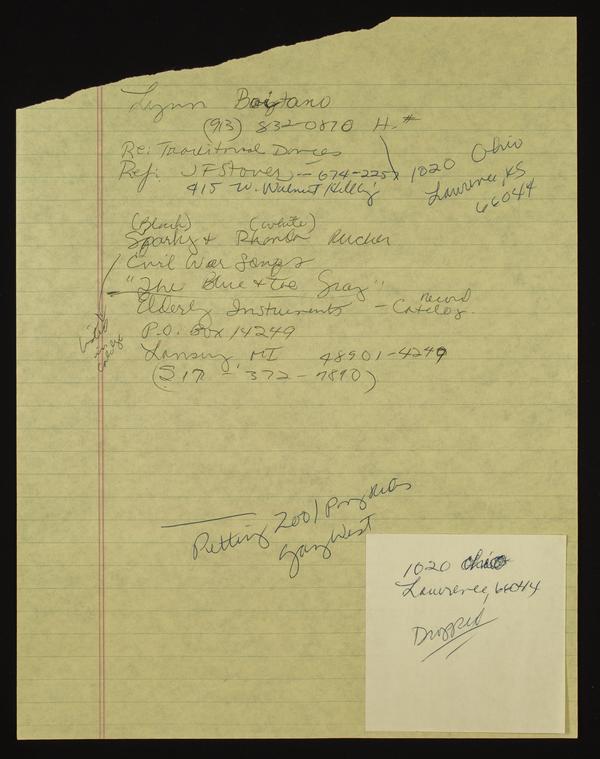 Lynn Boitano
(913) 832-0870 H.#
Re: Traditional Dances
Ref: JF Stover - 674-2257
415 W. Walnut
1020 Ohio
Lawrence, KS
66044
(Black) (white)
Sparky & Rhonda Rucker
Civil War Songs
"The Blue & the Gray"
Elderly Instruments - Record Catelog.
P.O. Box 14249
Lansing, MI 48901-4249
(517 - 372-7890)
Listed in
Petting Zoo / Pony Rides
Gary West
1020 Ohio
Lawrence, 66044
Dropped